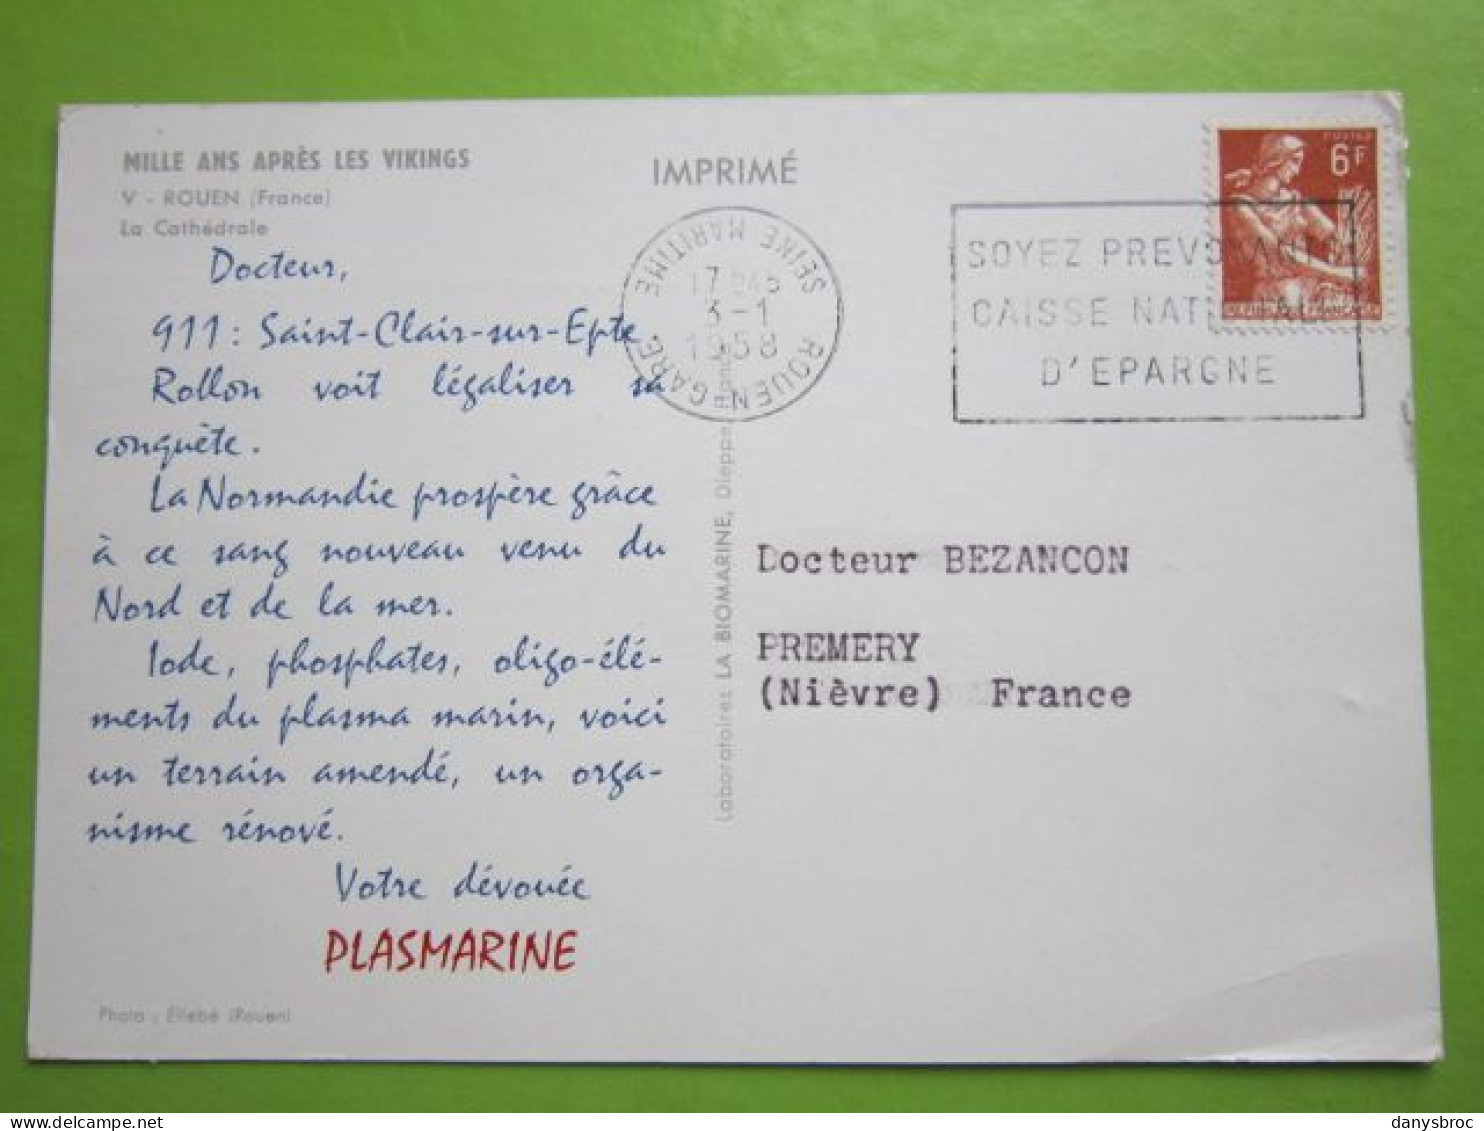 MILLE ANS APRÈS LES VIKINGS
V - ROUEN (France)
La Cathédrale
IMPRIMÉ
Docteur,
911 : Saint-Clair-sur-Epte
Rollon voit légaliser sa
conquête.
La Normandie prospère grâce
à ce sang nouveau venu du
Nord et de la mer.
Iode, phosphates, oligo-élé-
ments du plasma marin, voici
un terrain amendé, un orga-
nisme rénové.
Votre dévouée
PLASMARINE
Photo : Ellebé (Rouen)
Laboratoires LA BIOMARINE, Dieppe, France
ROUEN GARE
SEINE MARITIME
3-1
1958
SOYEZ PREVOYANTS
CAISSE NATIONALE
D'EPARGNE
POSTES
6F
REPUBLIQUE FRANÇAISE
Docteur BEZANCON
PREMERY
(Nièvre) France
danysbroc